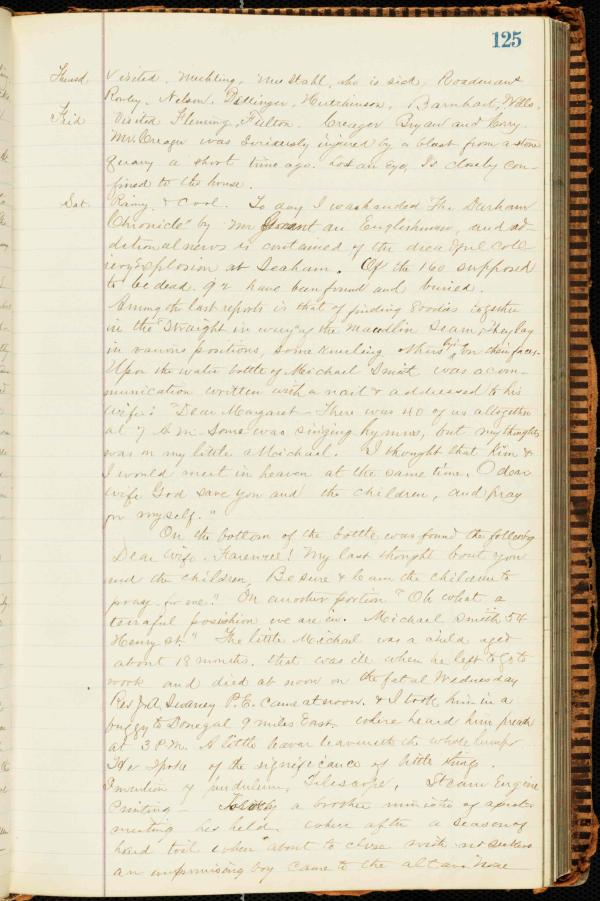 125
Thursd. Visited. Mechling, Mrs Stahl, who is sick, Roadmans
Rowley. Nelson. Dettinger, Hutchinson, Barnhart, Wills.
Frid Visited Fleming, Fulton. Creager Bryan and Corry.
Mr. Creager was seriously injured by a blast from a stone
quary a short time ago. Lost an eye, Is closely con-
fined to the house.
Sat. Rainy & Cool. To day I was handed The Durham
Chronicle" by Mr an Englishman, and ad-
ditional news is contained of the dreadful coll-
iery Explosion at Seaham. Of the 160 supposed
to be dead. 92 have been found and buried.
Among the last reports is that of finding bodies together
in the "Straight in way" of the Maudlin Seam, They lay
in various positions, some kneeling others lying on their faces.
Upon the water bottle of Michael Smith was a com-
munication written with a nail & addressed to his
wife: "Dear Margaret - There was 40 of us altogether
at 7 A.M. Some was singing hymns, but my thoughts
was on my little Michael. I thought that him &
I would meet in heaven at the same time. O dear
wife God save you and the children, and pray
for myself."
On the bottom of the bottle was found the following
Dear wife. Farewell! My last thought bout you
and the children, Be sure & learn the children to
pray for me." On another portion "Oh what a
terraful posishion we are in. Michael Smith 54
Henry St." The little Michael was a child aged
about 18 months. that was ill when he left to go to
work and died at noon on the fatal Wednesday
Rev J.A. Swaney P.E. came at noon. & I took him in a
buggy to Donegal 9 miles East. where heard him preach
at 3 P.M. A little leaven leaveneth the whole lump
He spoke of the significance of little things.
Invention of pendulum, Telescope, Steam Engine
Printing - a brother minister of a
meeting he held. where after a season of
hard toil when about to close with no seekers
an unpromising boy came to the altar. None